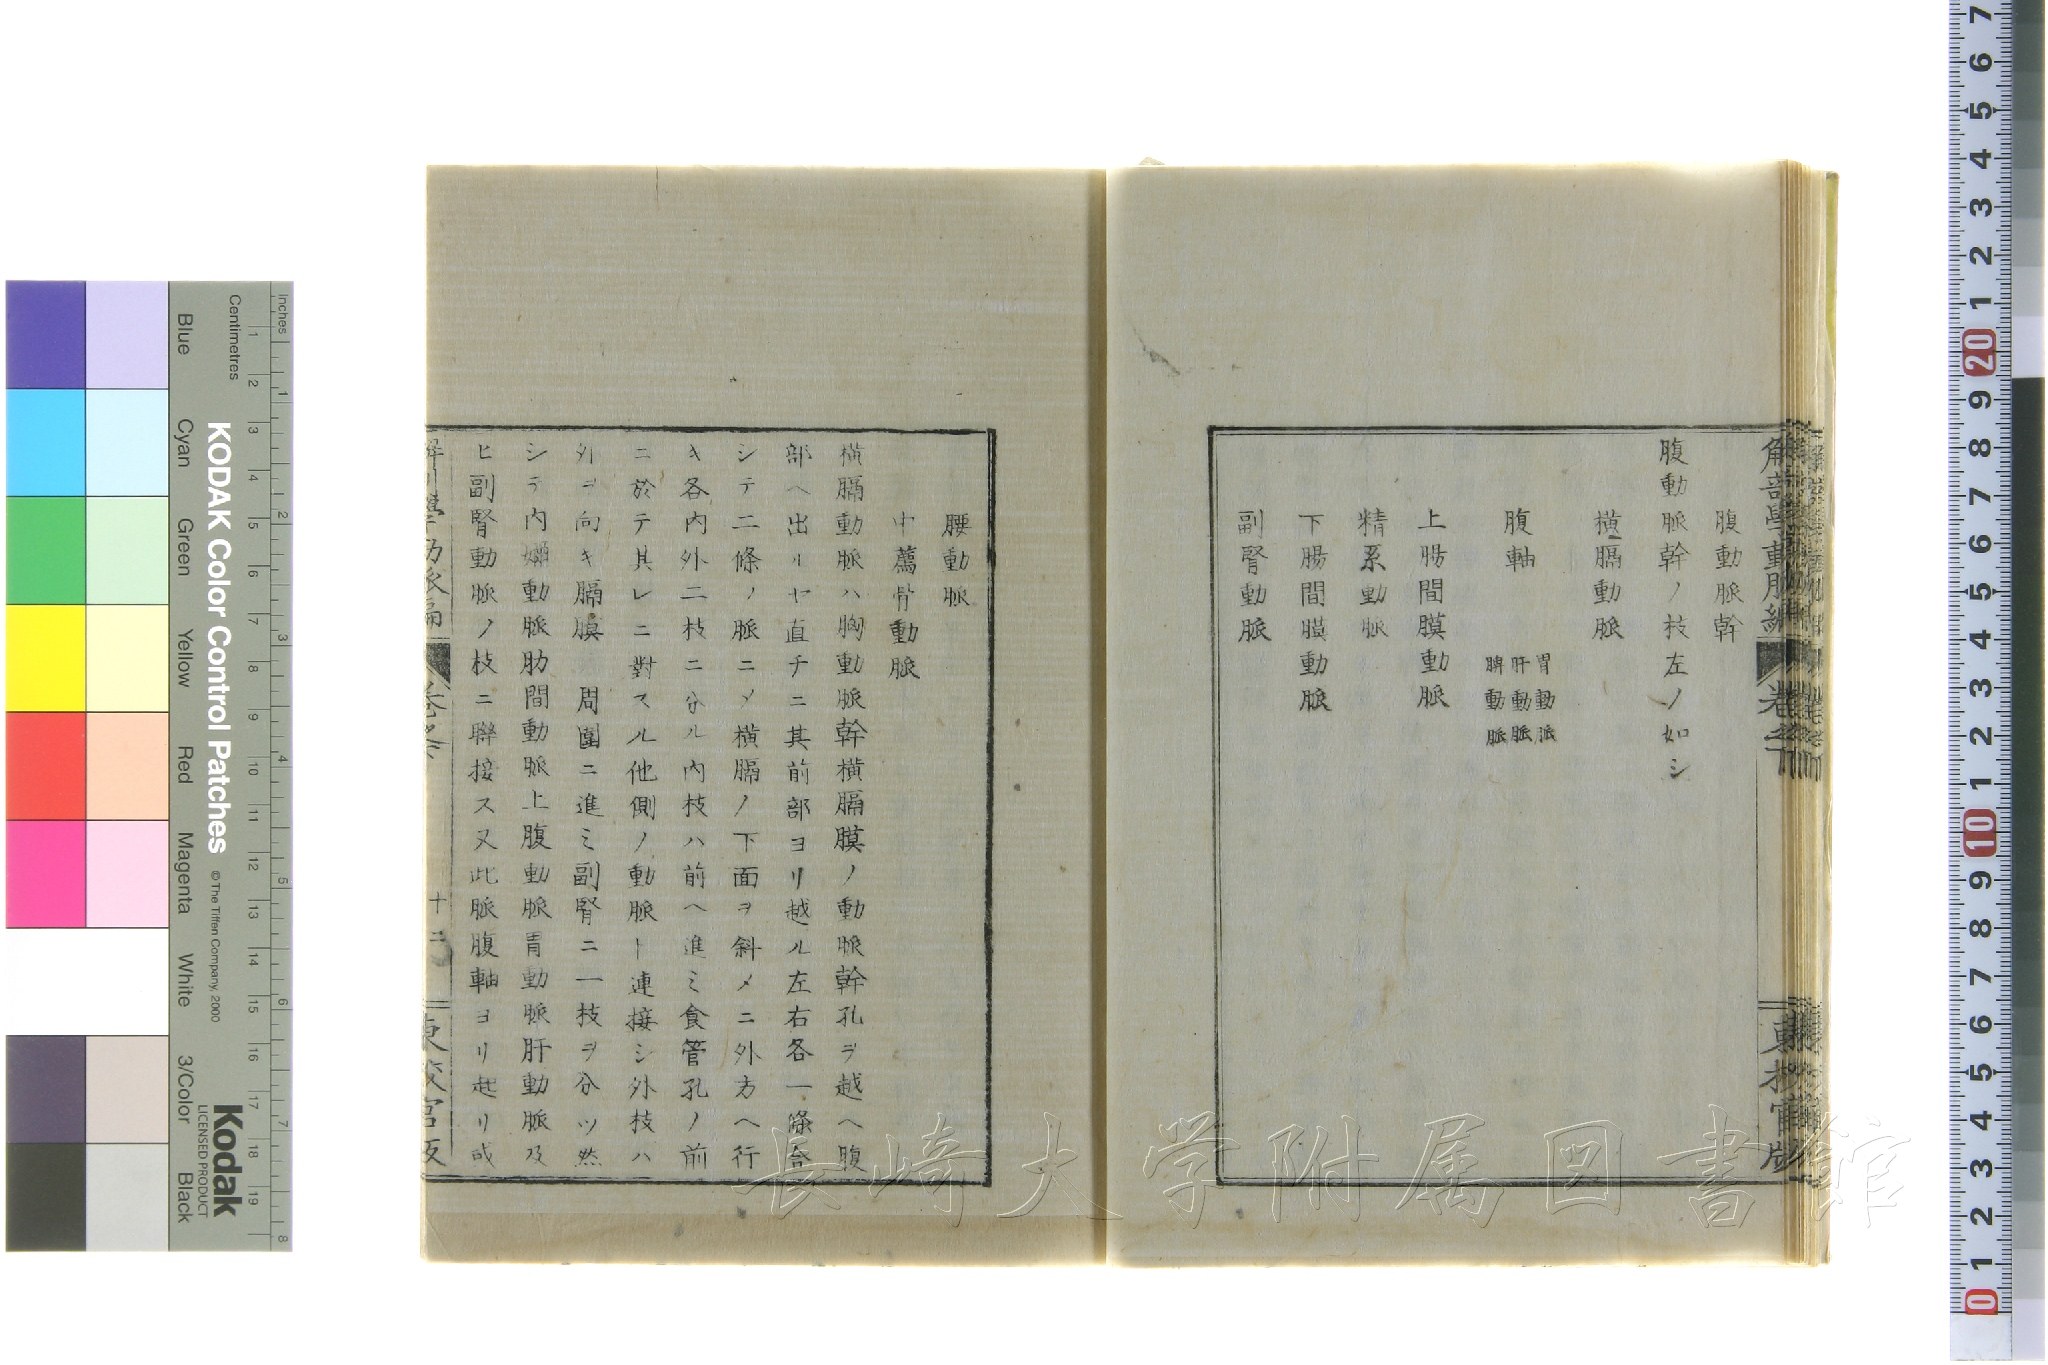 腹動脈幹
腹動脈幹ノ枝左ノ如シ
横膈動脈
腹軸
胃動脈
肝動脈
脾動脈
上腸間膜動脈
精系動脈
下腸間膜動脈
副腎動脈
腰動脈
中薦骨動脈
横膈動脈ハ胸動脈幹横膈膜ノ動脈幹孔ヲ越ヘ腹
部ヘ出ルヤ直チニ其前部ヨリ越ル左右各一條合
シテ二條ノ脈ニメ横膈ノ下面ヲ斜メニ外方ヘ行
キ各内外二枝ニ分ル内枝ハ前ヘ進ミ食管孔ノ前
ニ於テ其レニ對スル他側ノ動脈ト連接シ外枝ハ
外ヲ向キ膈膜周圍ニ進ミ副腎ニ一枝ヲ分ツ然
シテ内動脈肋間動脈上腹動脈胃動脈肝動脈及
ヒ副腎動脈ノ枝ニ聯接ス又此脈腹軸ヨリ起リ或
十二
長崎大学附属図書館
KODAK Color Control Patches
© The Tiffen Company, 2000
Kodak
LICENSED PRODUCT
Inches
Centimetres
Blue
Cyan
Green
Yellow
Red
Magenta
White
3/Color
Black